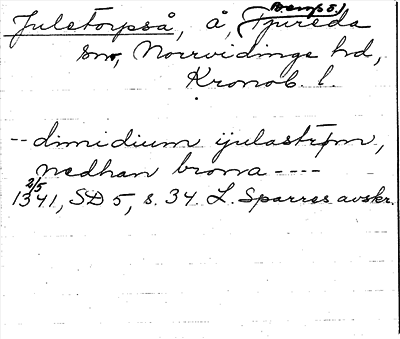 Juletorpså, å, Tjureda
sn, Norrvidinge hd,
Kronob. l.
-- dimidium ijulastrøm,
nedhan brona ----
1341, 2/5, SD 5, s. 34 L. Sparres avskr.